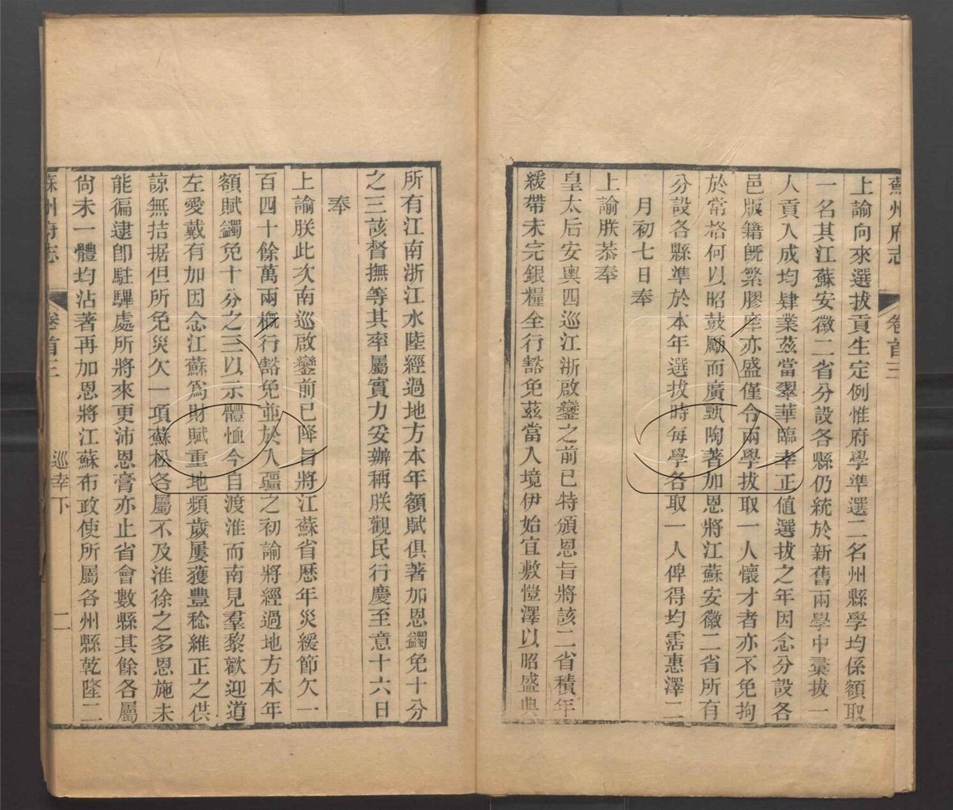 蘇州府志 卷首三
上諭向來選拔貢生定例惟府學準選二名州縣學均係額取
一名其江蘇安徽二省分設各縣仍統於新舊兩學中彙拔一
人貢入成均肄業茲當翠華臨幸正值選拔之年因念分設各
邑版籍既繁膠庠亦盛僅令兩學拔取一人懷才者亦不免拘
於常格何以昭鼓勵而廣甄陶著加恩將江蘇安徽二省所有
分設各縣準於本年選拔時每學各取一人俾得均霑惠澤二
月初七日奉
上諭朕恭奉
皇太后安輿四巡江浙啟鑾之前已特頒恩旨將該二省積年
緩帶未完銀糧全行豁免茲當入境伊始宜敷愷澤以昭盛典
所有江南浙江水陸經過地方本年額賦俱著加恩蠲免十分
之三該督撫等其率屬實力妥辦稱朕觀民行慶至意十六日
奉
上諭朕此次南巡啟鑾前已降旨將江蘇省歷年災緩節欠一
百四十餘萬兩概行豁免並於入疆之初諭將經過地方本年
額賦蠲免十分之三以示體恤今自渡淮而南見羣黎歡迎道
左愛戴有加因念江蘇爲財賦重地頻歲屢獲豐稔維正之供
諒無拮据但所免災欠一項蘇松各屬不及淮徐之多恩施未
能徧逮卽駐蹕處所將來更沛恩膏亦止省會數縣其餘各屬
尙未一體均沾著再加恩將江蘇布政使所屬各州縣乾隆二
蘇州府志 卷首三 巡幸下 二